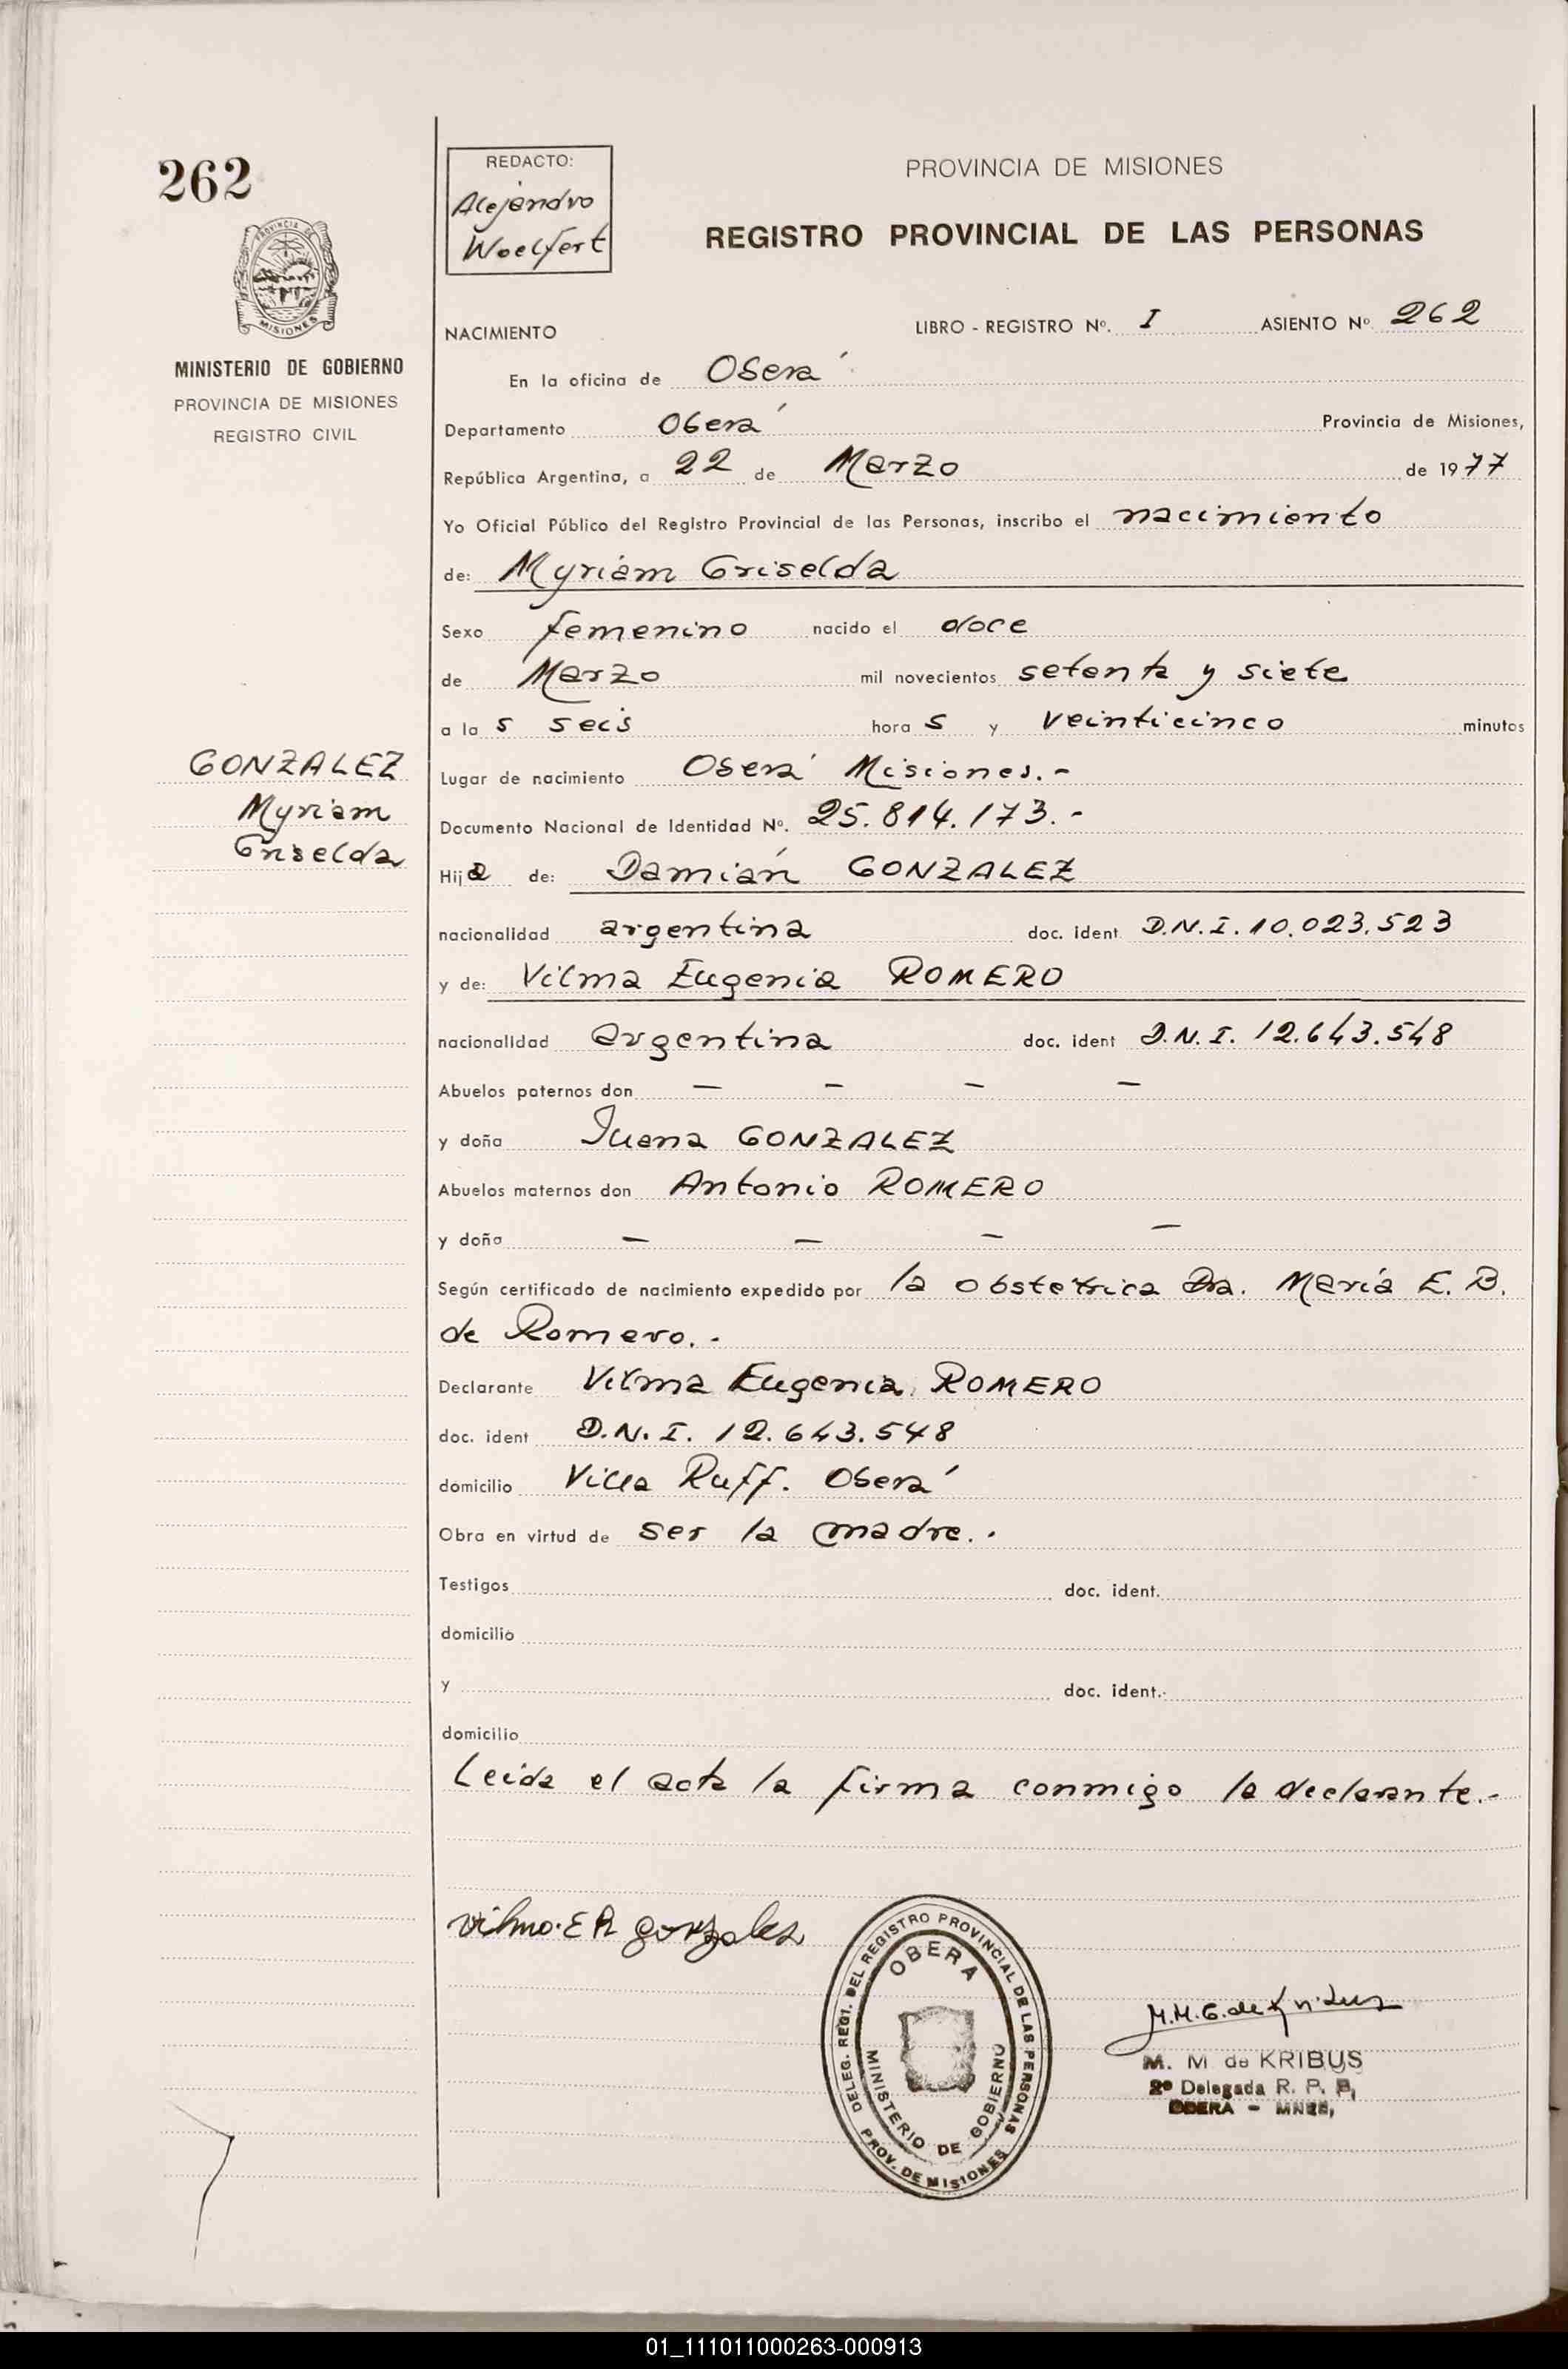 262
PROVINCIA DE
MISIONES
MINISTERIO DE GOBIERNO
PROVINCIA DE MISIONES
REGISTRO CIVIL
GONZALEZ
Myriam
Griselda
REDACTO:
Alejandro
Woelfert
PROVINCIA DE MISIONES
REGISTRO PROVINCIAL DE LAS PERSONAS
NACIMIENTO LIBRO - REGISTRO Nº. I ASIENTO Nº. 262
En la oficina de Oberá
Departamento Oberá Provincia de Misiones,
República Argentina, a 22 de Marzo de 1977
Yo Oficial Público del Registro Provincial de las Personas, inscribo el nacimiento
de: Myriam Griselda
Sexo femenino nacido el doce
de Marzo mil novecientos setenta y siete
a la s seis hora s y veinticinco minutos
Lugar de nacimiento Oberá Misiones.-
Documento Nacional de Identidad Nº. 25.814.173.-
Hija de: Damián GONZALEZ
nacionalidad argentina doc. ident D.N.I. 10.023.523
y de: Vilma Eugenia ROMERO
nacionalidad argentina doc. ident D.N.I. 12.643.548
Abuelos paternos don — — — —
y doña Juana GONZALEZ
Abuelos maternos don Antonio ROMERO
y doña — — — —
Según certificado de nacimiento expedido por la obstetrica Dra. María E. B.
de Romero.-
Declarante Vilma Eugenia ROMERO
doc. ident D.N.I. 12.643.548
domicilio Villa Ruff. Oberá
Obra en virtud de ser la madre.-
Testigos doc. ident.
domicilio
y doc. ident.
domicilio
Leida el acta la firma conmigo la declarante.-
Vilma. E R gonzalez
DELEG. REGI. DEL REGISTRO PROVINCIAL DE LAS PERSONAS
OBERA
MINISTERIO DE GOBIERNO
PROV. DE MISIONES
M.M.G. de Kribus
M. M de KRIBUS
2º Delegada R. P. P,
OBERA - MNES,
01_111011000263-000913